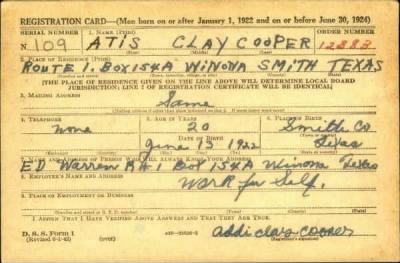 REGISTRATION CARD—(Men born on or after January 1, 1922 and on or before June 30, 1924)
SERIAL NUMBER 1. NAME (Print) ORDER NUMBER
N 109 ATIS CLAY COOPER 12883
2. PLACE OF RESIDENCE (Print)
ROUTE 1, BOX 154A WINONA SMITH TEXAS
[THE PLACE OF RESIDENCE GIVEN ON THE LINE ABOVE WILL DETERMINE LOCAL BOARD
JURISDICTION; LINE 2 OF REGISTRATION CERTIFICATE WILL BE IDENTICAL]
3. MAILING ADDRESS
Same
4. TELEPHONE 5. AGE IN YEARS 6. PLACE OF BIRTH
none 20 Smith Co
DATE OF BIRTH
June 13 1922 Texas
7. NAME AND ADDRESS OF PERSON WHO WILL ALWAYS KNOW YOUR ADDRESS
ED Warren Rt 1 Box 154A Winona Texas
8. EMPLOYER'S NAME AND ADDRESS
Work for Self.
9. PLACE OF EMPLOYMENT OR BUSINESS
I AFFIRM THAT I HAVE VERIFIED ABOVE ANSWERS AND THAT THEY ARE TRUE.
D. S. S. Form 1
(Revised 6-1-42) (over) clay cooper
(Registrant's signature)